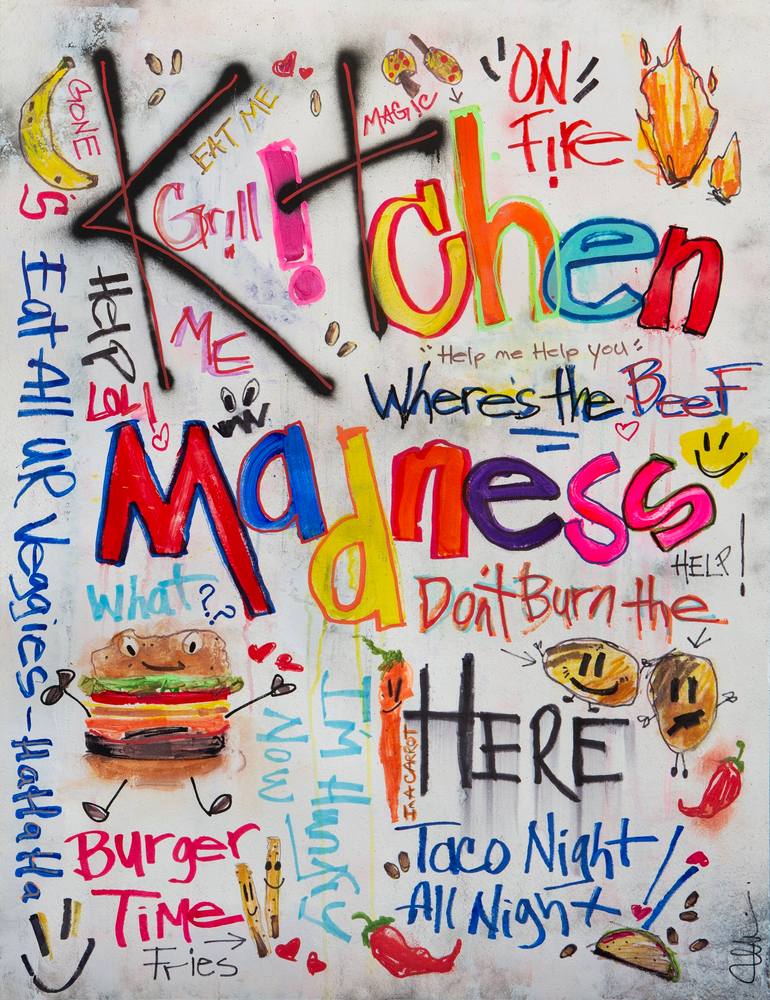 Kitchen
GONE
EAT ME
MAGIC
"ON"
Fire
Grill
IS
Eat All UR Veggies-HaHaHa
Help
ME
"Help me Help you"
LOL!
Where's the BeeF
Madness
HELP!
What??
Don't Burn the
HERE
I'm A CARROT
I'm Hungry
Now
Burger
Time
Fries
Taco Night
All Night!!